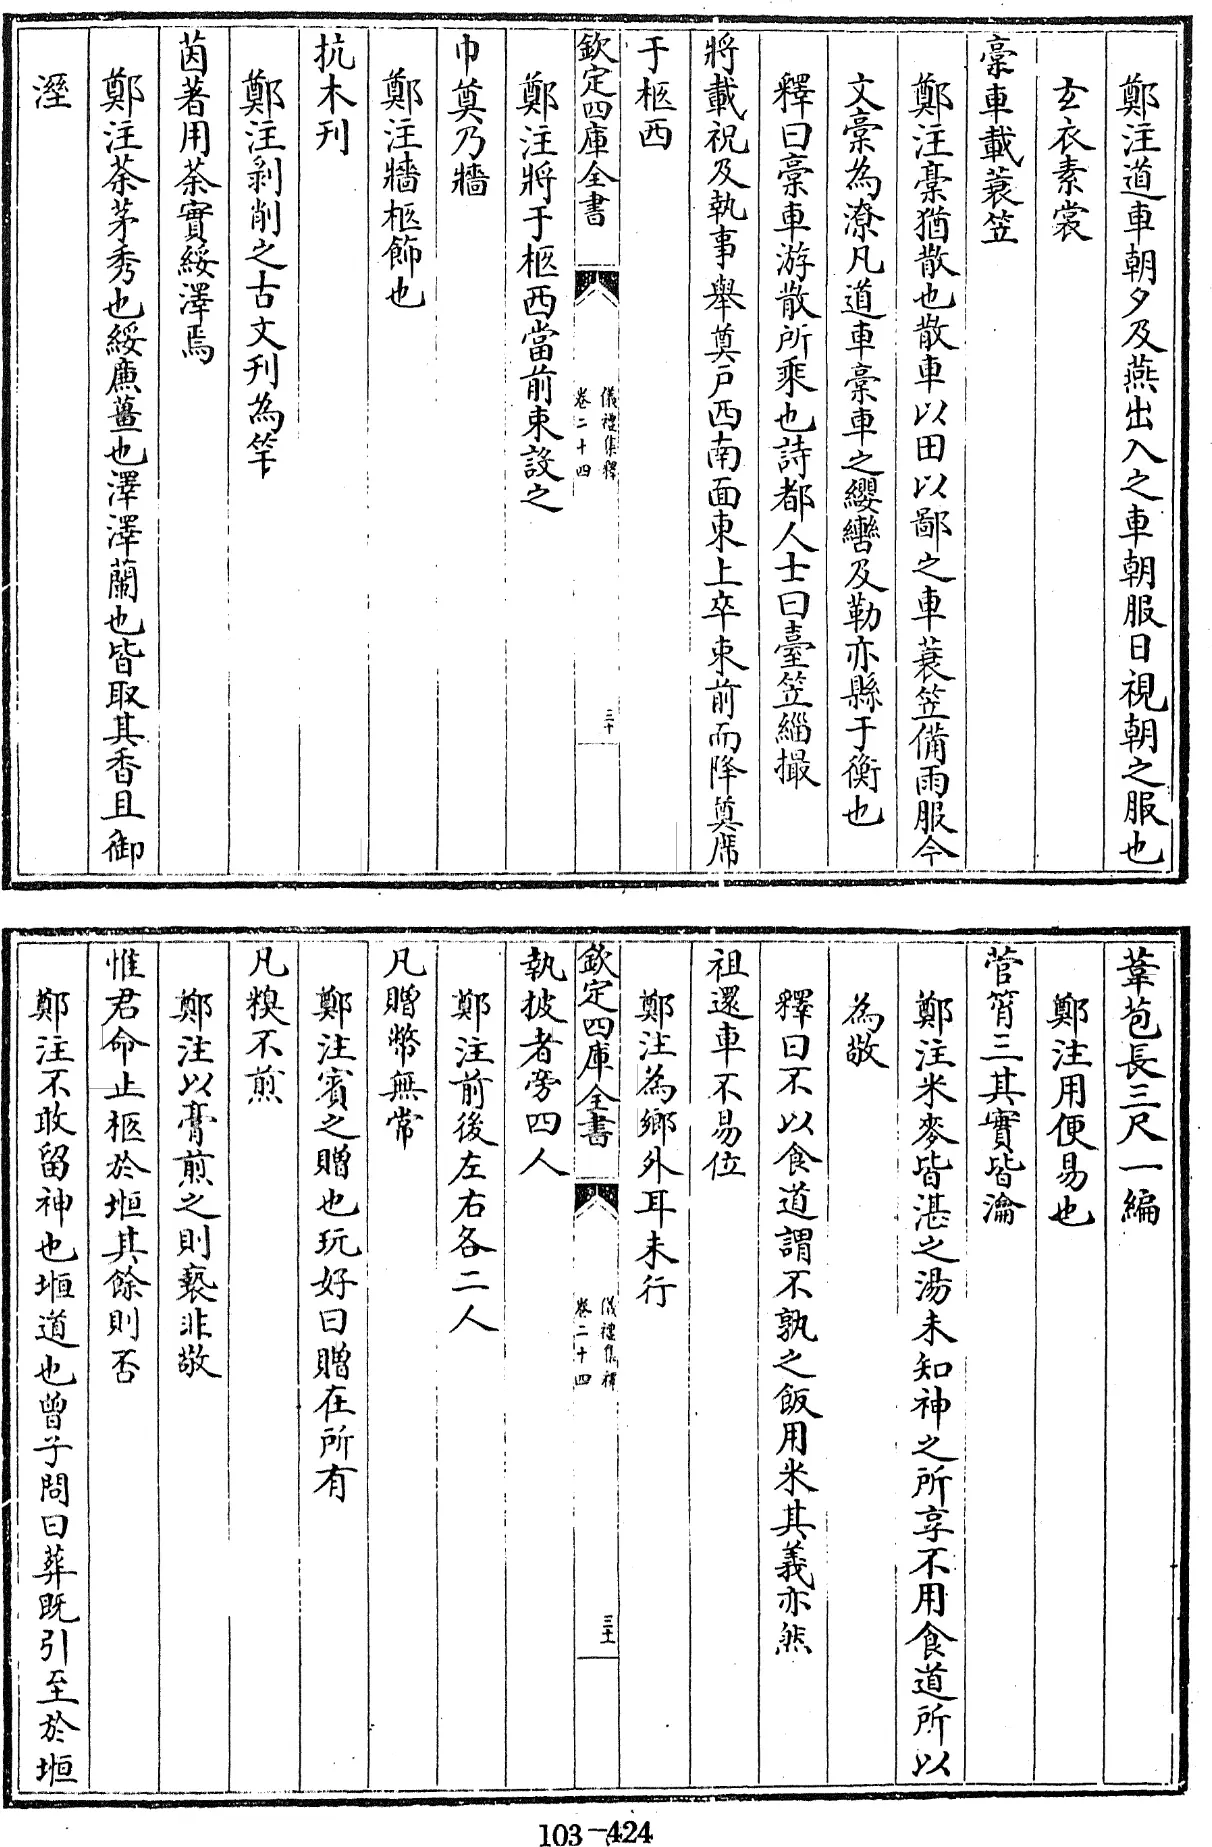 鄭注道車朝夕及燕出入之車朝服日視朝之服也
玄衣素裳
槀車載蓑笠
鄭注槀猶散也散車以田以鄙之車蓑笠備雨服今
文槀為潦凡道車槀車之纓轡及勒亦縣于衡也
釋曰槀車游散所乘也詩都人士曰臺笠緇撮
將載祝及執事舉奠戶西南面東上卒束前而降奠席
于柩西
欽定四庫全書
儀禮集釋
卷二十四
三十
鄭注將于柩西當前束設之
巾奠乃牆
鄭注牆柩飾也
抗木刊
鄭注剥削之古文刊為竿
茵著用荼實綏澤焉
鄭注荼茅秀也綏廉薑也澤澤蘭也皆取其香且御
溼
葦苞長三尺一編
鄭注用便易也
菅筲三其實皆瀹
鄭注米麥皆湛之湯未知神之所享不用食道所以
為敬
釋曰不以食道謂不孰之飯用米其義亦然
祖還車不易位
鄭注為鄉外耳未行
欽定四庫全書
儀禮集釋
卷二十四
三十一
執披者旁四人
鄭注前後左右各二人
凡贈幣無常
鄭注賓之贈也玩好曰贈在所有
凡糗不煎
鄭注以膏煎之則褻非敬
惟君命止柩於堩其餘則否
鄭注不敢留神也堩道也曾子問曰葬既引至於堩
103-424